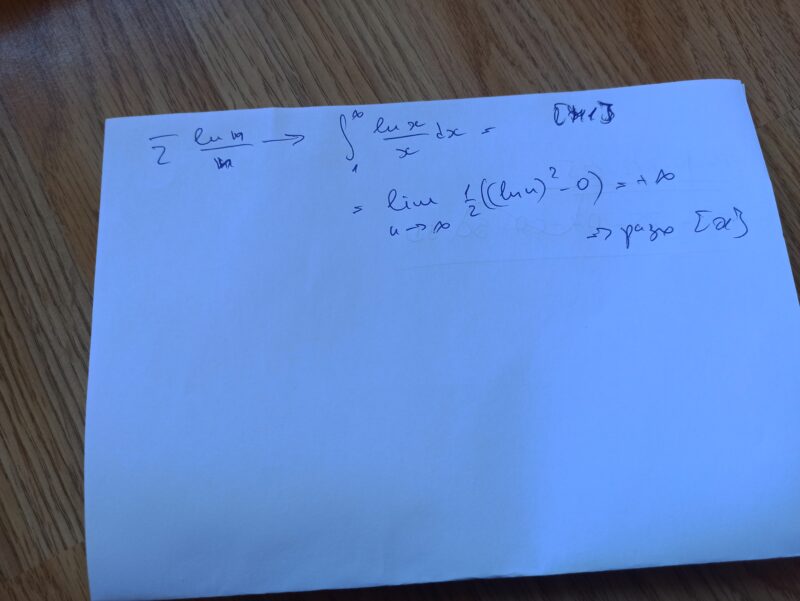 ∑ ln n / n → ∫₁^∞ ln x / x dx =
= lim u→∞ 1/2((ln u)² - 0) = +∞
⇒ разх